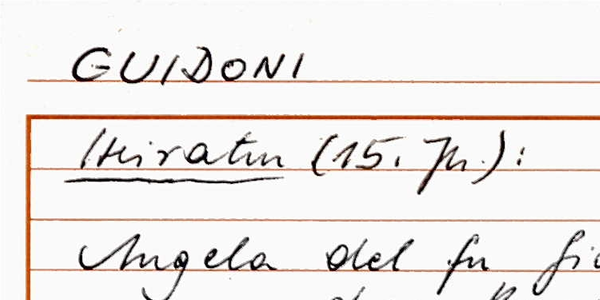 GUIDONI
Heiraten (15. Jh.):
Angela del fu